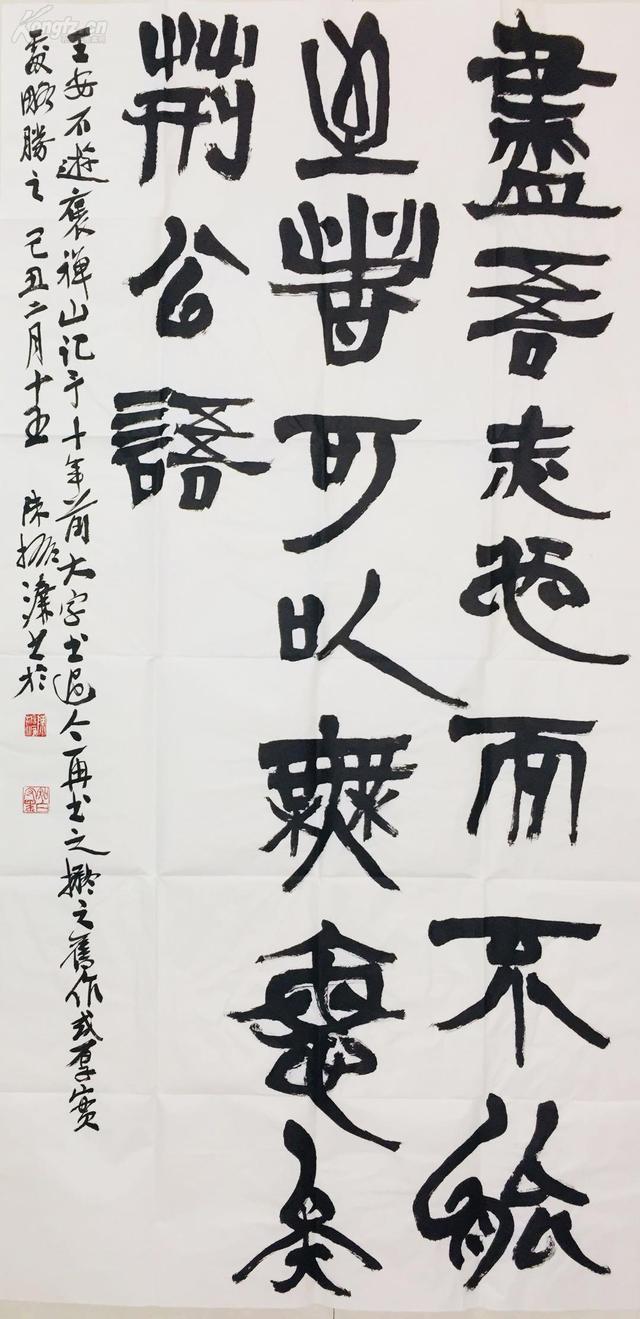 盡吾志也而不能
至者可以無悔矣
荊公語
王安石遊褒禪山記予十年前大字書過今再書之擬之舊作或厚實
處略勝之己丑二月十五 陳振濂書於
Kongfz.cn